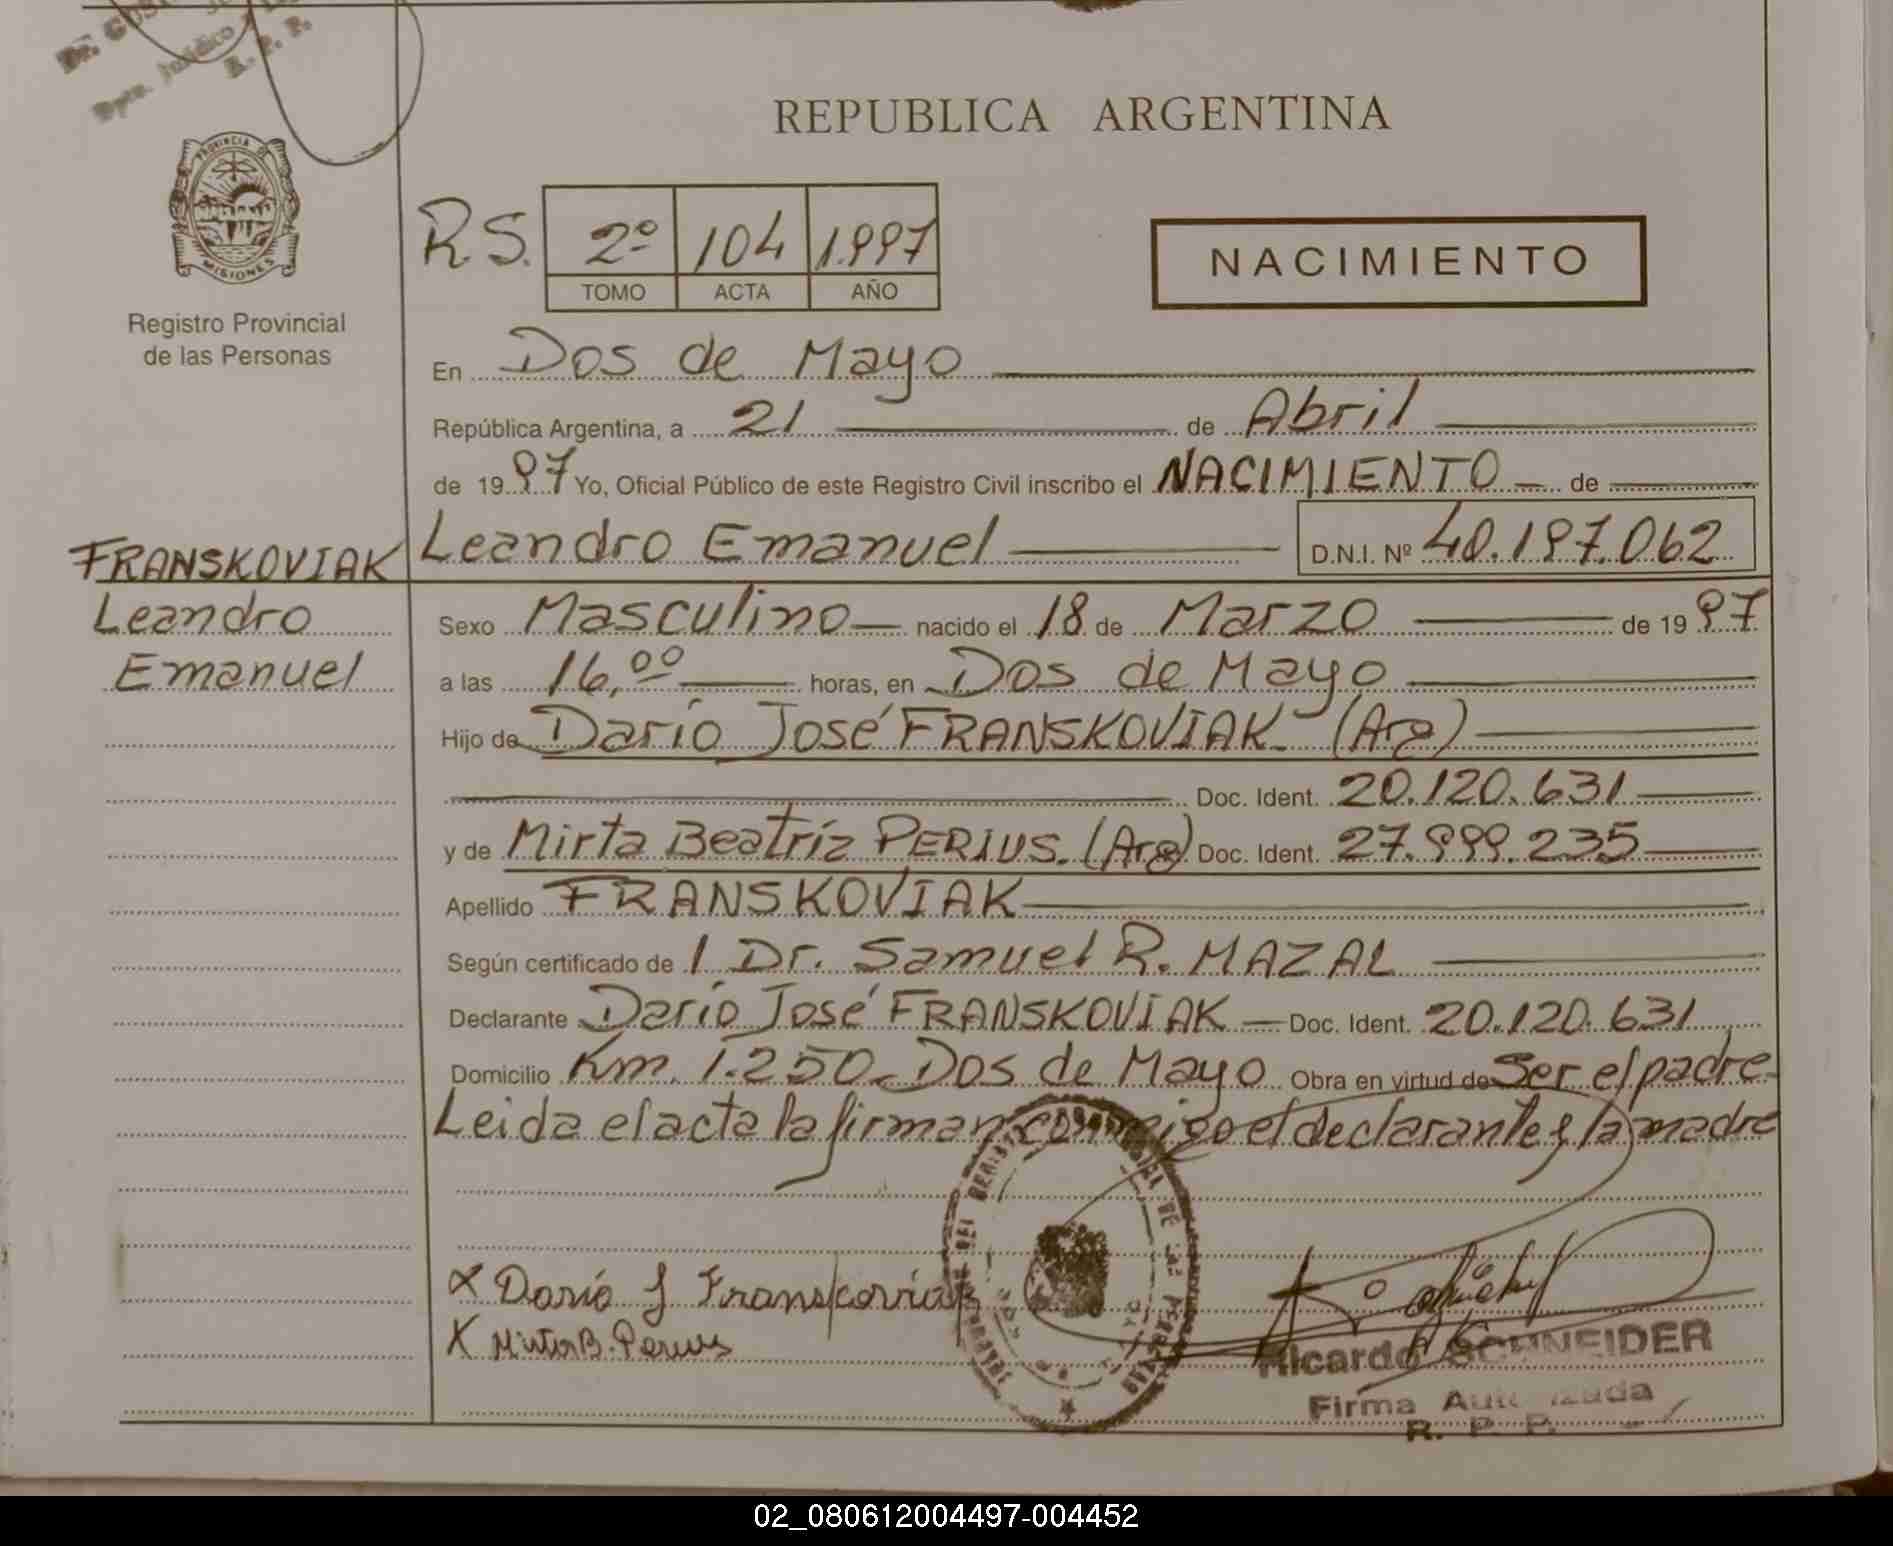 REPUBLICA ARGENTINA
PROVINCIA DE
MISIONES
Registro Provincial
de las Personas
R.S. 2º 104 1.997
TOMO ACTA AÑO
NACIMIENTO
En Dos de Mayo
República Argentina, a 21 de Abril
de 1997 Yo, Oficial Público de este Registro Civil inscribo el NACIMIENTO de
FRANSKOVIAK Leandro Emanuel D.N.I. Nº 40.197.062
Leandro
Emanuel
Sexo Masculino nacido el 18 de Marzo de 1997
a las 16,00 horas, en Dos de Mayo
Hijo de Darío José FRANSKOVIAK (Arg)
Doc. Ident. 20.120.631
y de Mirta Beatríz PERIUS. (Arg) Doc. Ident. 27.999.235
Apellido FRANSKOVIAK
Según certificado de 1 Dr. Samuel R. MAZAL
Declarante Darío José FRANSKOVIAK Doc. Ident. 20.120.631
Domicilio Km. 1.250 Dos de Mayo Obra en virtud de Ser el padre
Leida el acta la firman conmigo el declarante y la madre
X Dario J Franskoviak
X Mirta B. Perius
Ricardo SCHNEIDER
Firma Autorizada
R. P. P.
02_080612004497-004452